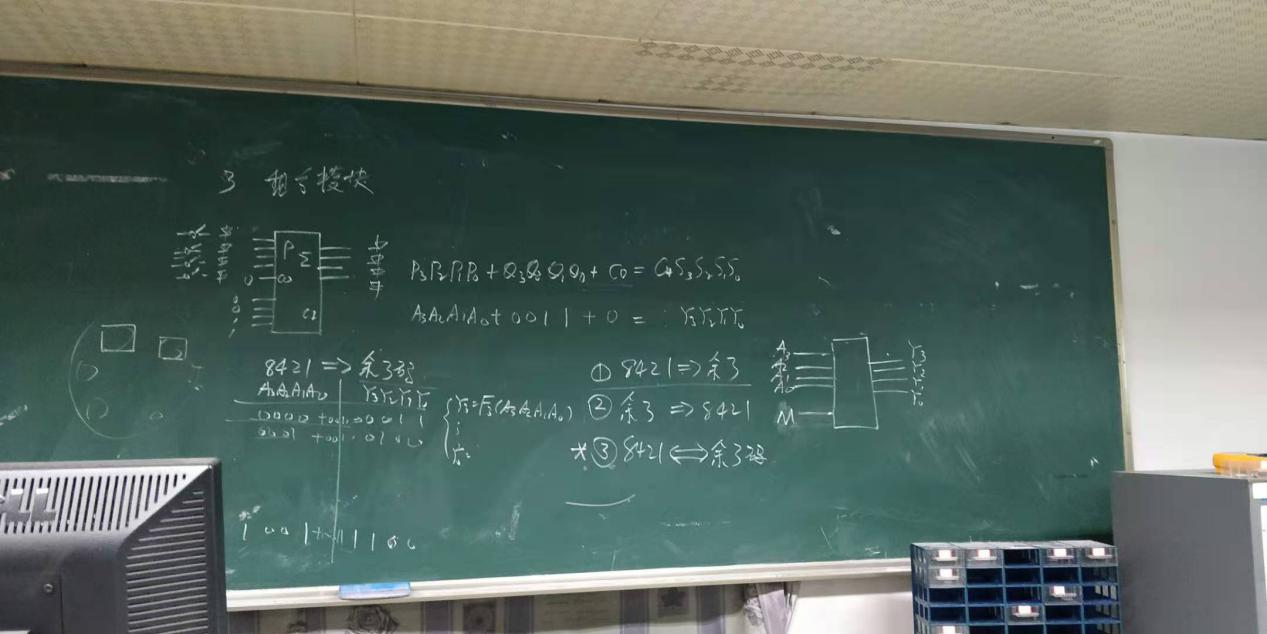 3 组合模块
P Σ
0 C0
C4
P3P2P1P0 + Q3Q2Q1Q0 + C0 = C4S3S2S1S0
A3A2A1A0 + 0011 + 0 = Y3Y2Y1Y0
8421 => 余3码
A3A2A1A0 Y3Y2Y1Y0
0000 +0011 0011
0001 +0011 0100
1001 1100
{ Y3=F3(A3A2A1A0)
① 8421 => 余3
② 余3 => 8421
*③ 8421 <=> 余3码
A3
A2
A1
A0
M
Y3
Y2
Y1
Y0